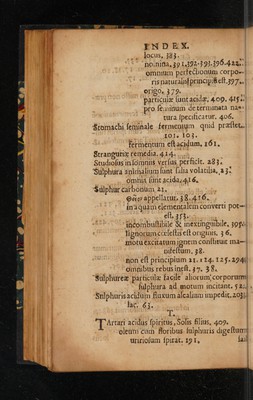 INDEX.
locus, 383.
nomina. 391.392.393.396.422.
omnium perfectionum corpo-
ris naturalis principiū est. 397.
origo. 379.
particulæ sunt acidæ. 409. 415.
pro seminum determinata na-
tura specificatur. 406.
Stomachi seminale fermentum quid præstet.
101. 103.
fermentum est acidum. 161.
Stranguriæ remedia. 414.
Studiosus in somnis versus perficit. 283.
Sulphura animalium sunt salia volatilia. 23.
omnia sunt acida. 416.
Sulphur carbonum 21.
appellatur. 38. 416.
in aquam elementalem converti pot-
est. 353.
incombustibile & inextinguibile. 395.
lignorum cœlestis est originis. 36.
motu excitatum ignem constituit ma-
nifestum. 38.
non est principium 21. 124. 125. 294.
omnibus rebus inest. 37. 38.
Sulphureæ particulæ facile aliorum corporum
sulphura ad motum incitant. 52.
Sulphuris acidum fluxum alcalium impedit. 203.
lac. 63.
T.
TArtari acidus spiritus, Solis filius, 409.
oleum cum floribus sulphuris digestum
urinosum spirat. 291.